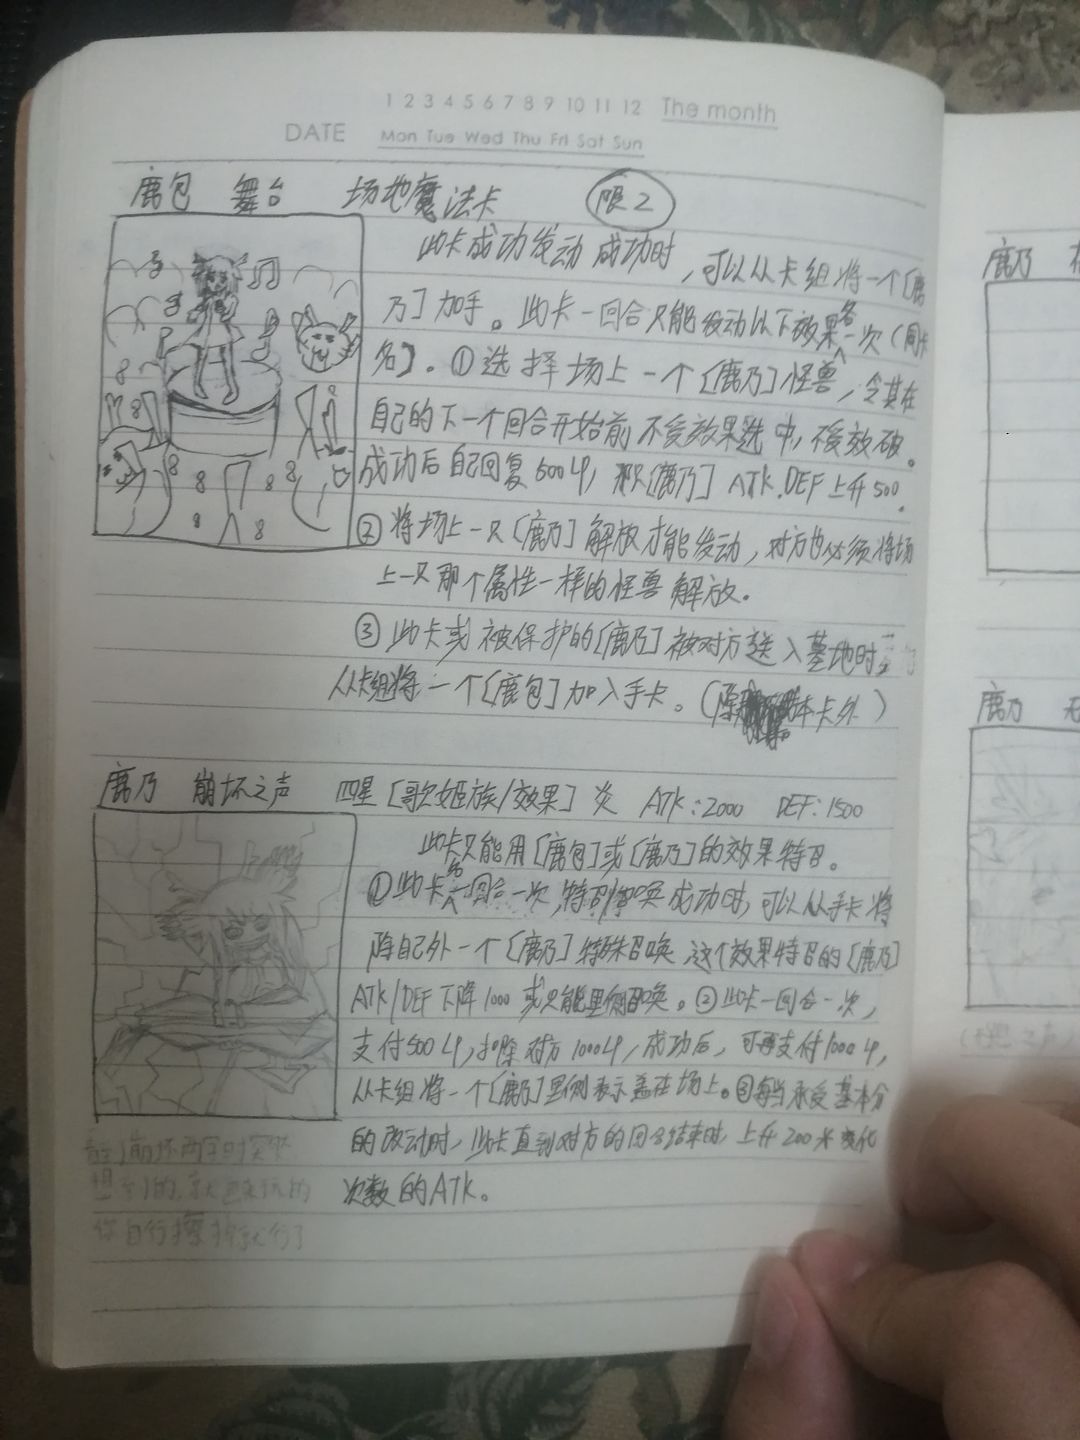 1 2 3 4 5 6 7 8 9 10 11 12 The month
DATE Mon Tue Wed Thu Fri Sat Sun
鹿包 舞台 场地魔法卡 限2
此卡成功发动成功时,可以从卡组将一个[鹿
乃]加手。此卡一回合只能发动以下效果各一次(同卡
名)。①选择场上一个[鹿乃]怪兽,令其在
自己的下一个回合开始前不受效果选中,不受效破。
成功后自己回复500LP,那只[鹿乃]ATK.DEF上升500.
②将场上一只[鹿乃]解放才能发动,对方也必须将场
上一只那个属性一样的怪兽解放。
③此卡或被保护的[鹿乃]被对方送入墓地时
从卡组将一个[鹿包]加入手卡。(除本卡外)
鹿乃 崩坏之声 四星[歌姬族/效果]炎 ATK:2000 DEF:1500
此卡只能用[鹿包]或[鹿乃]的效果特召。
①此卡名一回合一次,特召/召唤成功时,可以从手卡将
除自己外一个[鹿乃]特殊召唤,这个效果特召的[鹿乃]
ATK/DEF下降1000或只能里侧召唤。②此卡一回合一次,
支付500LP,扣除对方1000LP,成功后,可再支付1000LP,
从卡组将一个[鹿乃]里侧表示盖在场上。③每当承受基本分
的改动时,此卡直到对方的回合结束时,上升200×变化
次数的ATK。
看到崩坏两字时突然
想到的,就
你自行擦掉就行了
鹿乃
鹿乃